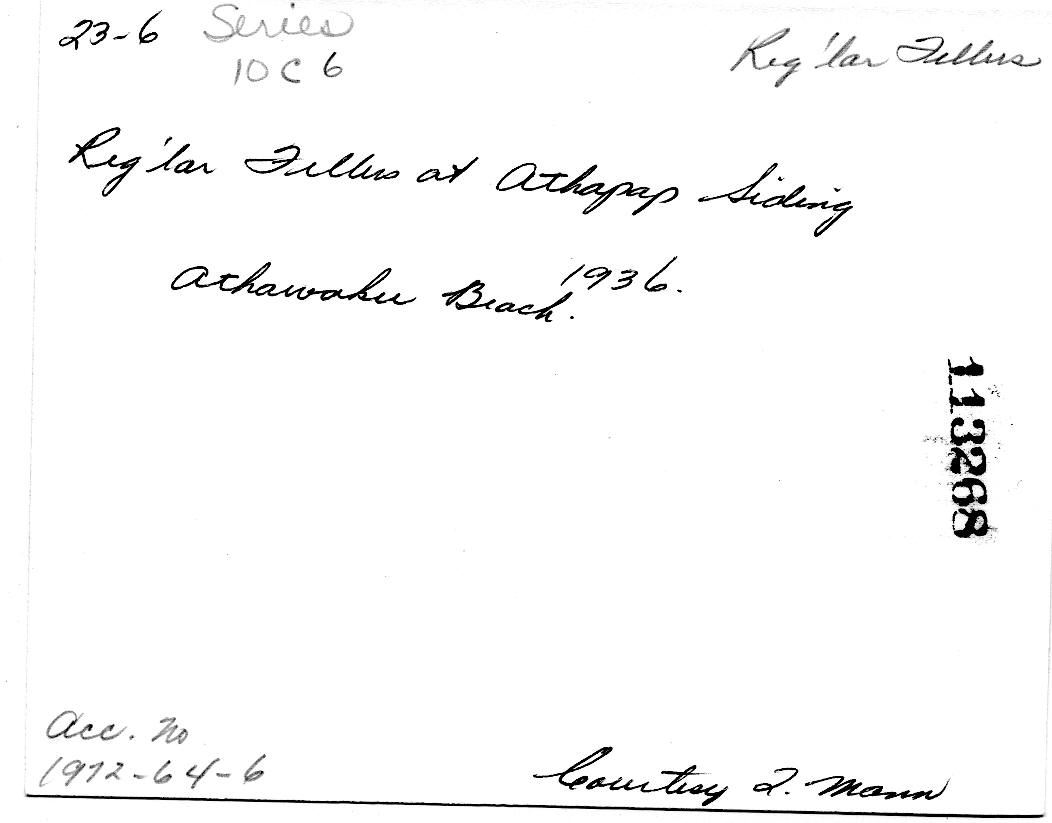 23-6 Series
10 C 6
Reg'lar Fellers
Reg'lar Fellers at Athapap Siding
Athawaku Beach. 1936.
113268
Acc. No
1972-64-6
Courtesy I. Mann